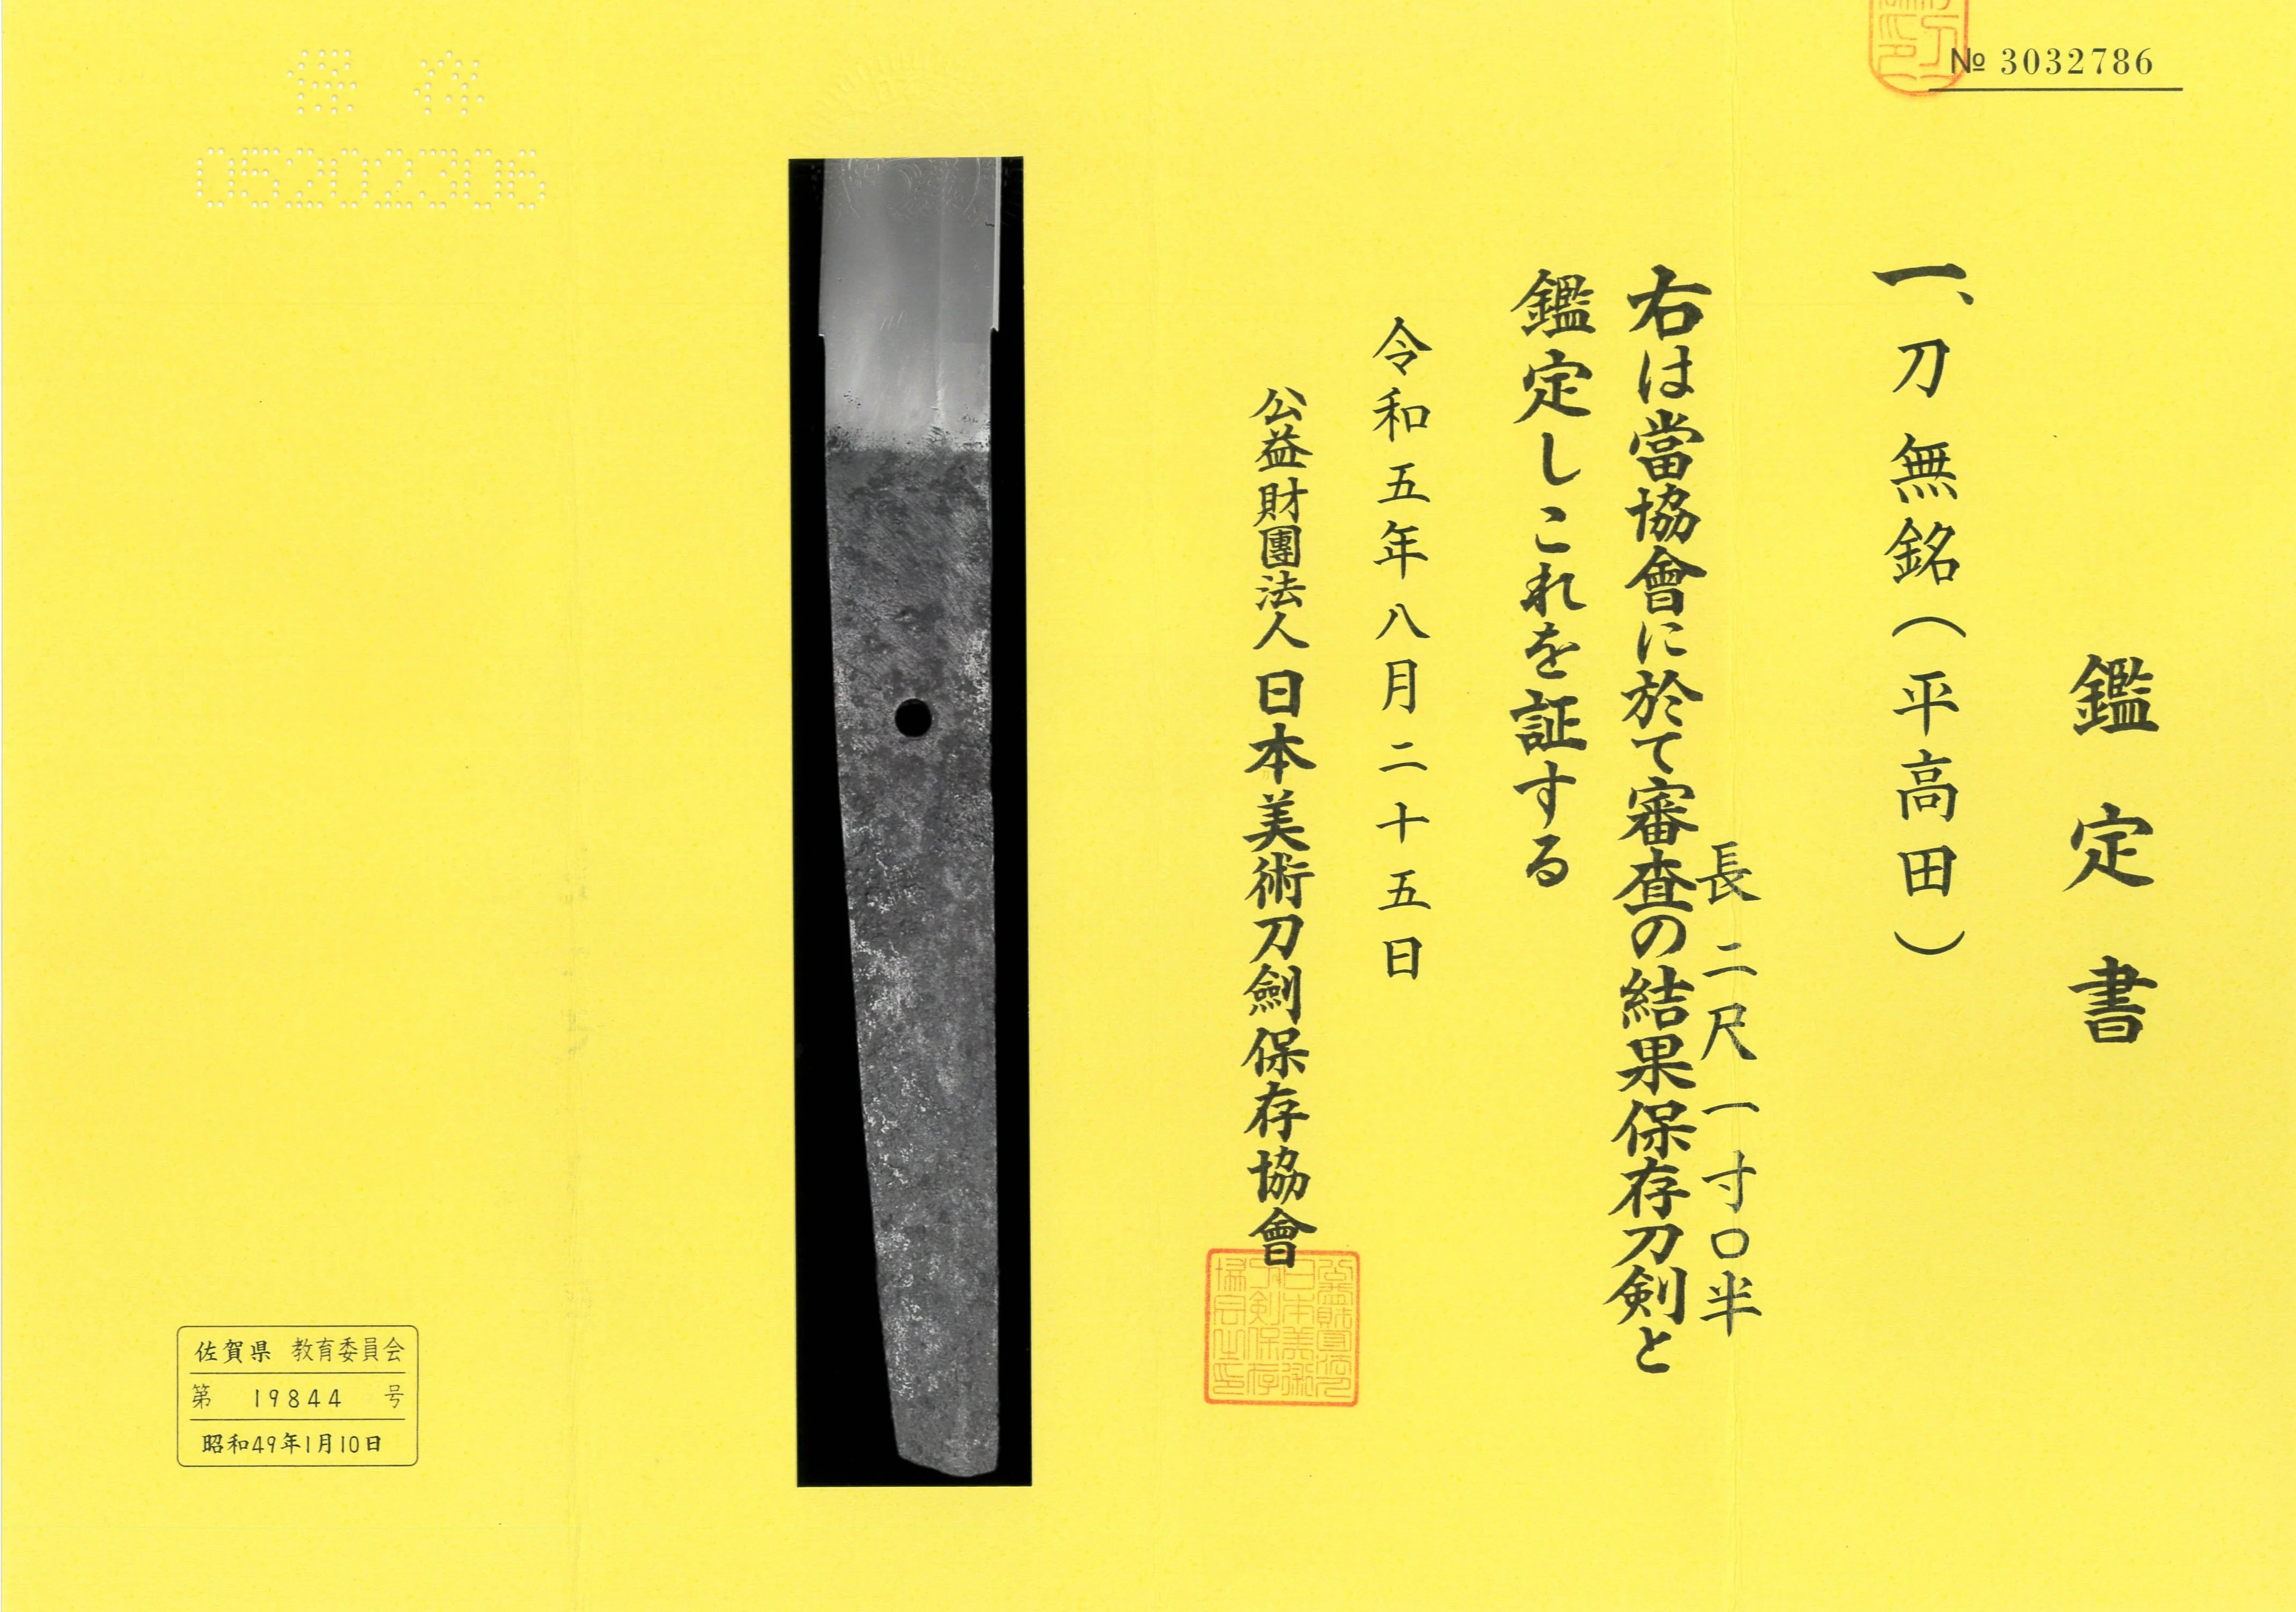 № 3032786
鑑定書
一、刀 無銘(平高田)
長 二尺一寸〇半
右は當協會に於て審査の結果保存刀剣と
鑑定しこれを証する
令和五年八月二十五日
公益財團法人 日本美術刀劍保存協會
保存
05202306
佐賀県 教育委員会
第 19844 号
昭和49年1月10日